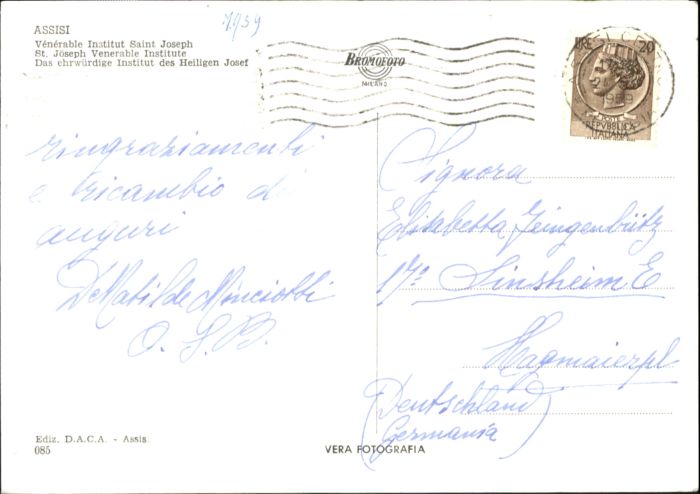 1959
ASSISI
Vénérable Institut Saint Joseph
St. Jöseph Venerable Institute
Das ehrwürdige Institut des Heiligen Josef
BROMOFOTO
MILANO
LIRE 20
1959
POSTE
REPVBBLICA
ITALIANA
ringraziamenti
e ricambio di
auguri
D. Matilde Minciotti
O. S. B.
Signora
Elisabetta Zeingenbütz
17a Sinsheim E
Hagmaierpl
(Deutschland)
(Germania)
Ediz. D.A.C.A. - Assisi
085
VERA FOTOGRAFIA